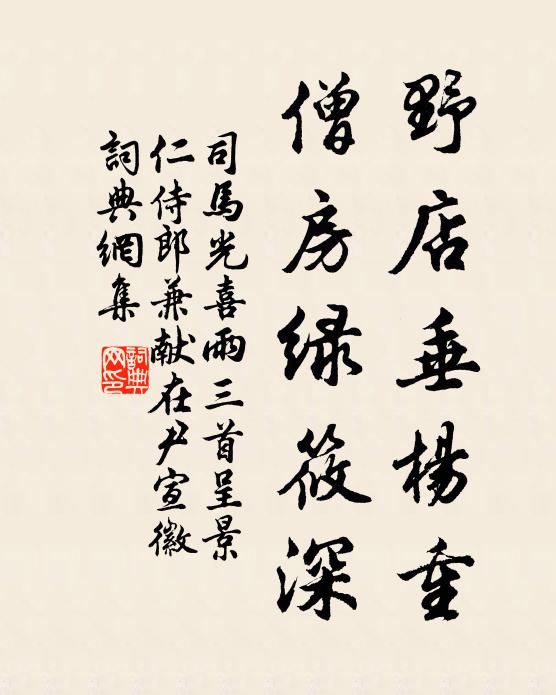 野店垂楊重
僧房緑筱深
司馬光喜雨三首呈景
仁侍郎兼献在尹宣徽
詞典網集
詞典網印